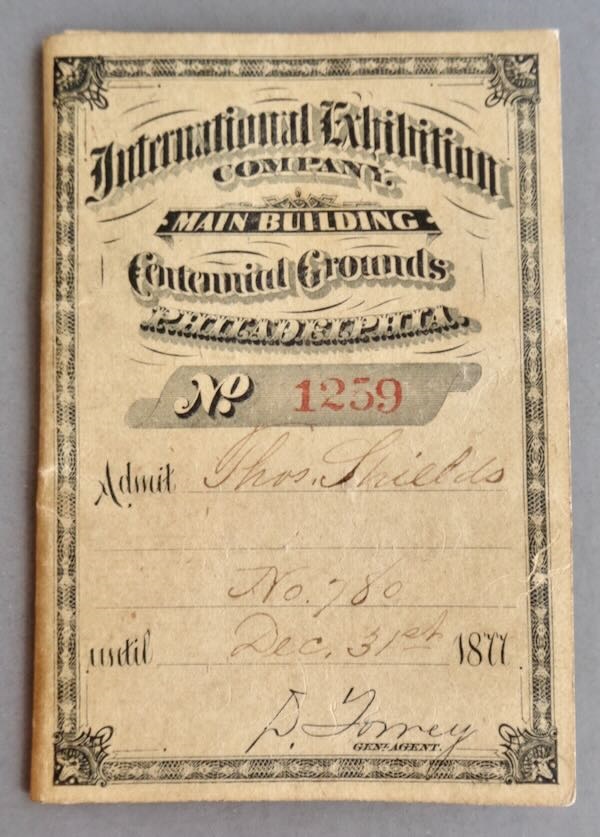 International Exhibition
COMPANY.
MAIN BUILDING
Centennial Grounds
PHILADELPHIA.
No 1259
Admit Thos. Shields
No. 780
until Dec. 31st 1877
D. Torrey
GENL AGENT.